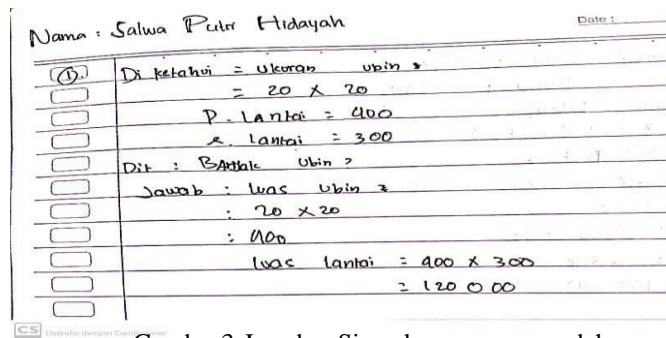 Nama : Salwa Putri Hidayah
Date :
①. Di ketahui = Ukuran ubin :
= 20 x 20
P. Lantai = 400
l. lantai = 300
Dit : Ubin ?
Jawab : luas ubin :
: 20 x 20
: 400
luas lantai = 400 x 300
= 120 000
CS Dipindai dengan CamScanner